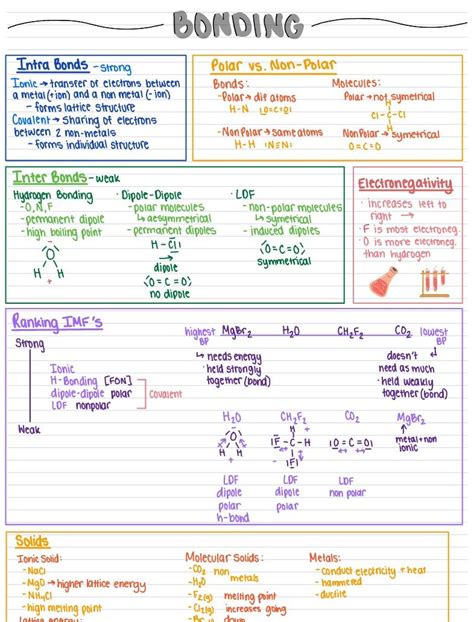 BONDING
Intra Bonds - strong
Ionic → transfer of electrons between
a metal (+ion) and a non metal (- ion)
- forms lattice structure
Covalent → sharing of electrons
between 2 non-metals
- forms individual structure
Polar vs. Non-Polar
Bonds:
- Polar → dif atoms
H-N
- Non Polar → same atoms
H-H
Molecules:
Polar → not symetrical
Cl-C-Cl
Non Polar → symetrical
O=C=O
Inter Bonds - weak
Hydrogen Bonding
- O, N, F
- permanent dipole
- high boiling point
O
H H
+
· Dipole-Dipole
- polar molecules
↳ asymetrical
- permanent dipoles
H-Cl
→
dipole
O=C=O
no dipole
· LDF
- non-polar molecules
↳ symetrical
- induced dipoles
O=C=O
symmetrical
Electronegativity
· increases left to
right →
· F is most electroneg.
· O is more electroneg.
than hydrogen
Ranking IMF's
Strong
Ionic
H-Bonding [FON]
dipole-dipole polar
LDF nonpolar
Covalent
Weak
highest BP MgBr2 H2O CH2F2 CO2 lowest BP
↳ needs energy
· held strongly
together (bond)
doesn't
need as much
· held weakly
together (bond)
H2O CH2F2 CO2 MgBr2
metal+non
ionic
LDF LDF LDF
dipole dipole non polar
polar polar
h-bond
Solids
Ionic Solid:
- NaCl
- MgO → higher lattice energy
- NH4Cl
- high melting point
Molecular Solids:
- CO2 non
- H2O metals
- F2(g) melting point
- Cl2(g) increases going
Metals:
- conduct electricity + heat
- hammered
- ductile